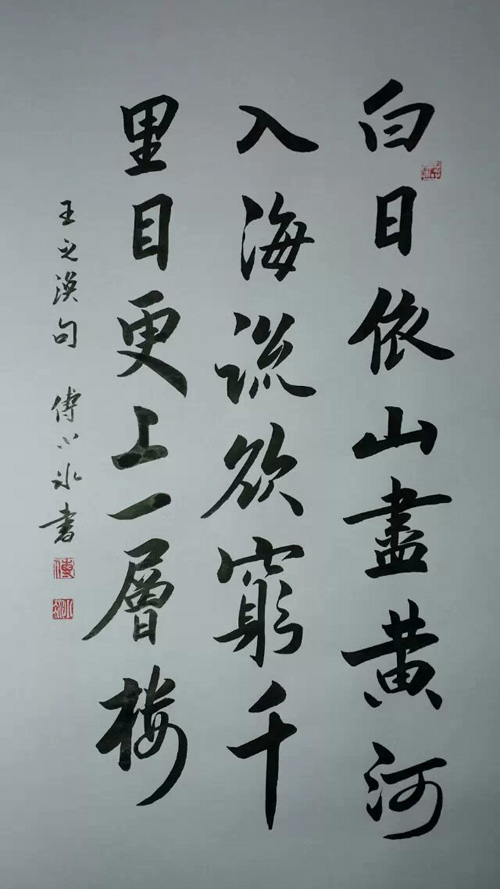 白日依山盡黄河
入海流欲窮千
里目更上一層楼
王之渙句 傅小冰書
傅